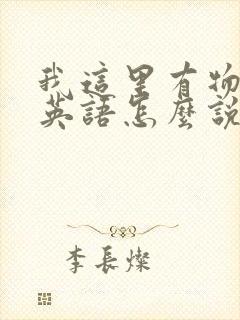 我這里有物
英語怎麼說
李長燦